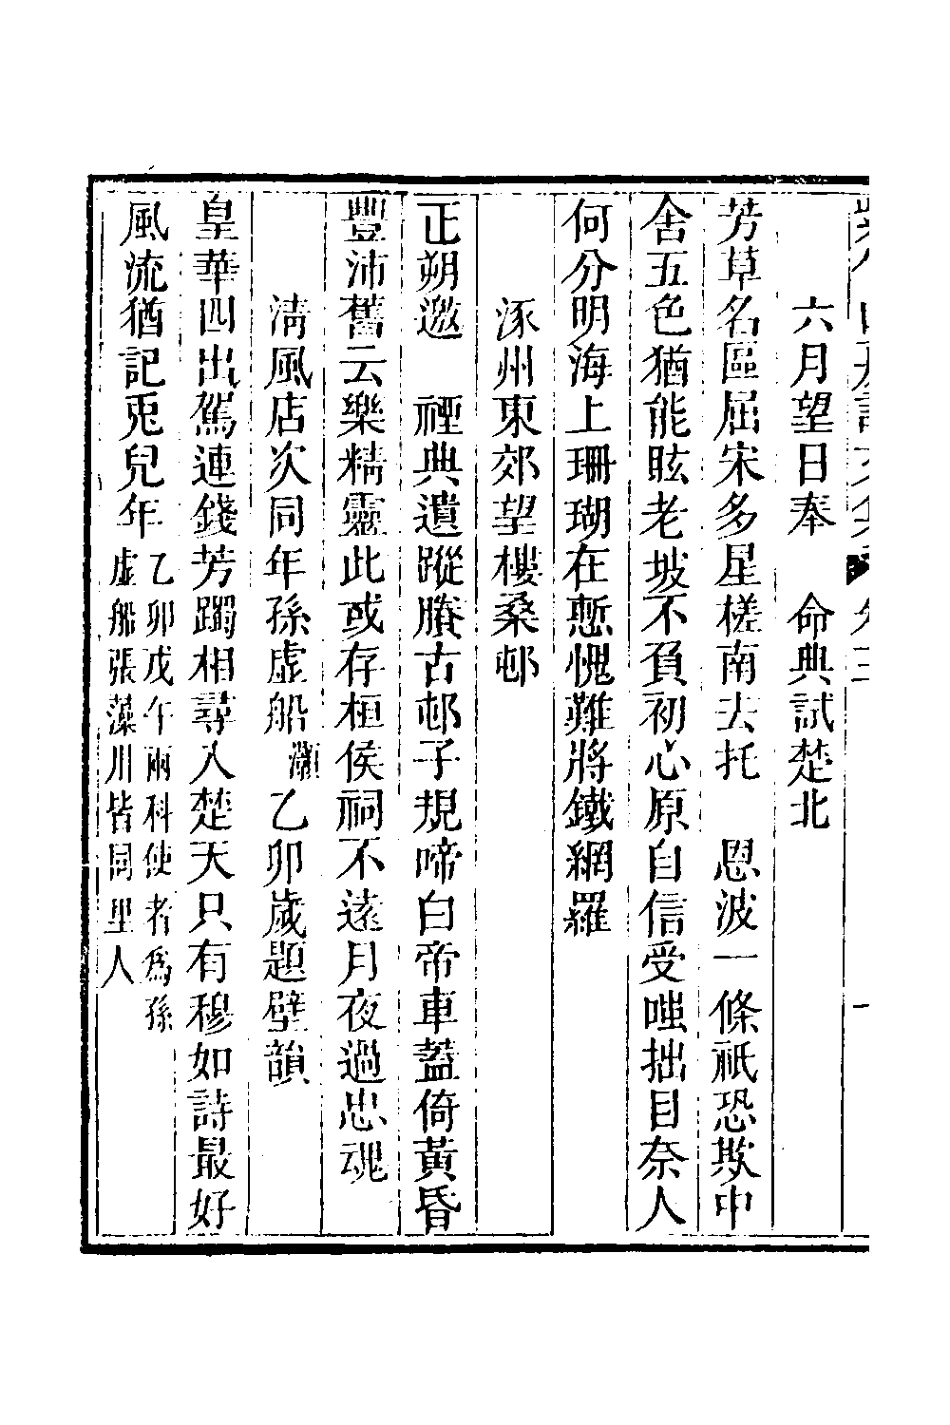 六月望日奉　命典試楚北
芳草名區屈宋多星槎南去托　恩波一條祇恐欺中
舍五色猶能眩老坡不負初心原自信受嗤拙目奈人
何分明海上珊瑚在慙愧難將鐵網羅
涿州東郊望樓桑邨
正朔邀　禋典遺蹤賸古邨子規啼白帝車蓋倚黃昏
豐沛舊云樂精靈此或存桓侯祠不遠月夜過忠魂
淸風店次同年孫虛船灝乙卯歲題壁韻
皇華四出駕連錢芳躅相尋入楚天只有穆如詩最好
風流猶記兎兒年
乙卯戊午兩科使者爲孫
虛船張藻川皆同里人